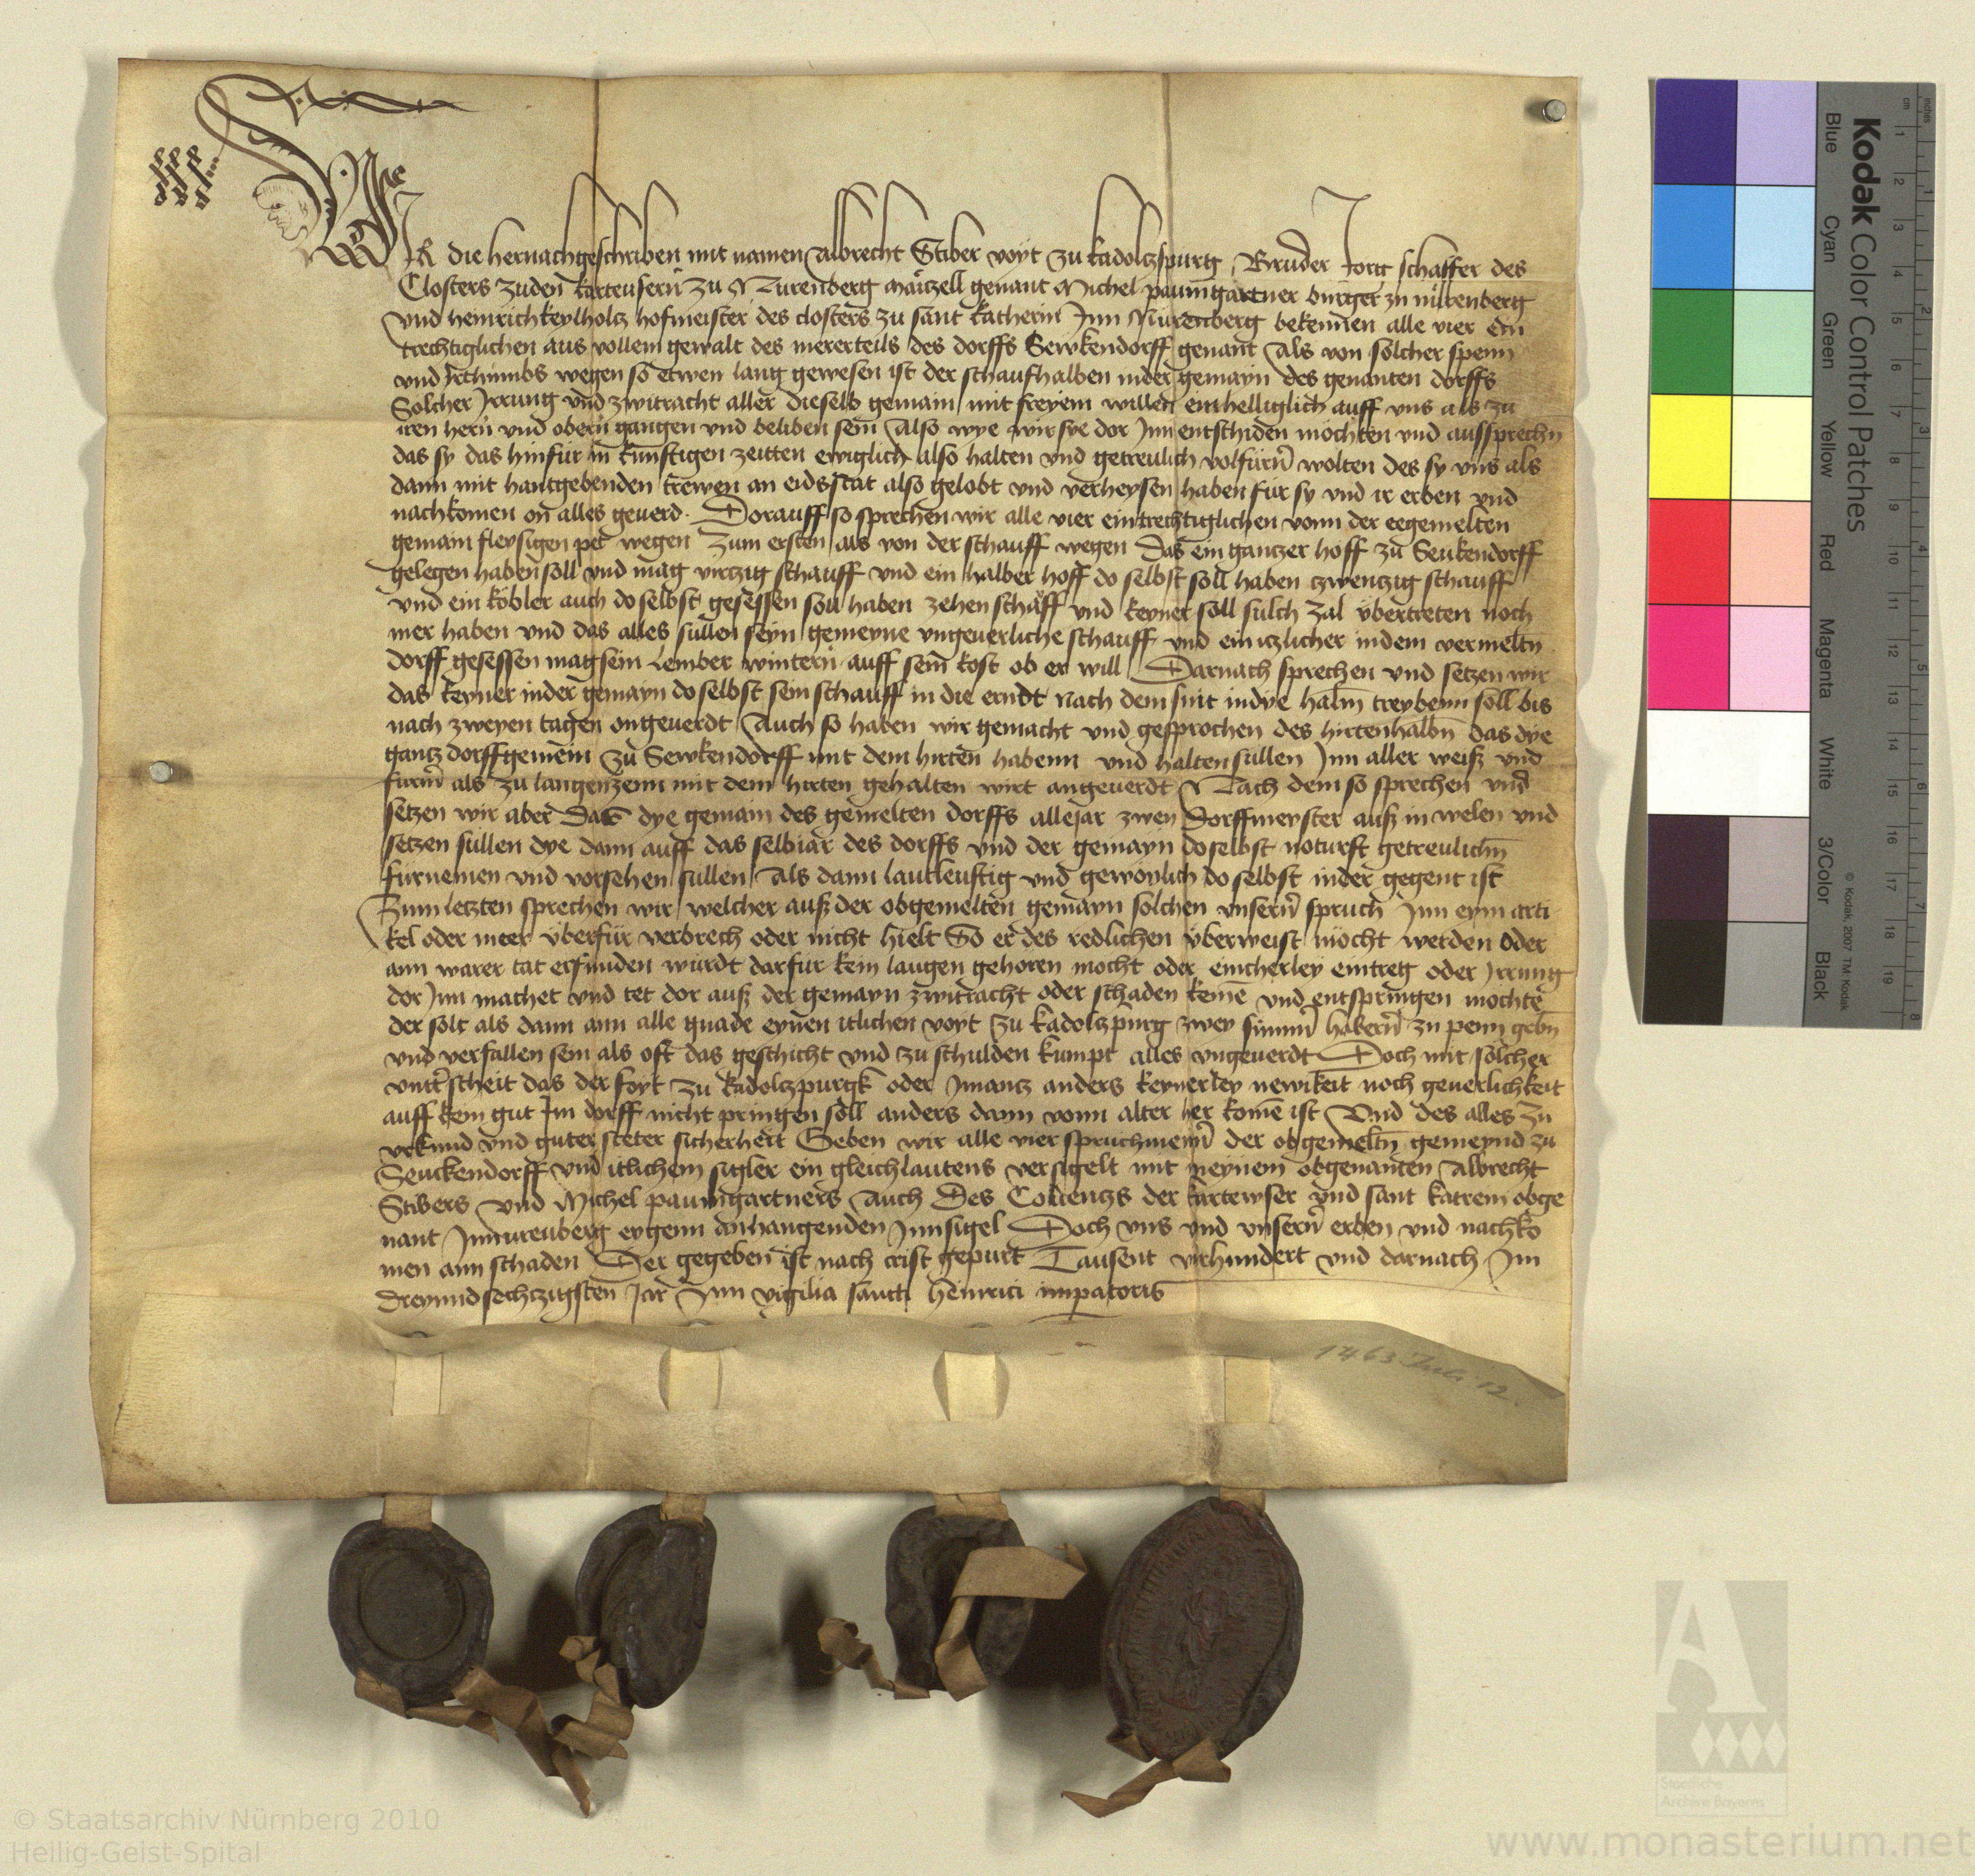 WIR die hernachgeschriben mit namen Albrecht Stiber voyt zu kadoltzpurg Bruder Jorg schaffer des
Closters zuden karteusern zu Nurenberg genant Michel paumgartner burger zu nurenberg
vnd heinrich keylholtz hofmeister des closters zu sant katherin Inn Nurenberg bekennen alle vier ein
trechtiglichen aus vollem gewalt des merer teils des dorffs Sewkendorff genant Als von solcher spenn
vnd Irthumbs wegen so etwen lang gewesen ist der schaufhalben inder gemayn des genanten dorffs
Solcher Irrung vnd zwitracht aller dieselb gemain mit freyem willen einhelliglich auff vns als zu
iren hern vnd obern gangen vnd beliben sein Also wye wir sye dor Inn entschiden mochten vnd aussprechn
das sy das hinfur in kunftigen zeitten ewiglich also halten vnd getreulich volfurn wolten des sy vns als
dann mit hantgebenden trewen an eidsstat also gelobt vnd verheysen haben fur sy vnd ir erben vnd
nachkomen on alles geuerd. Dorauff so sprechen wir alle vier eintrechtiglichen vonn der eegemelten
gemain fleysigen pet wegen Zum ersten als von der schauff wegen Das ein gantzer hoff zu Seukendorff
gelegen haben soll vnd mag virtzig schauff vnd ein halber hoff do selbst soll haben zwentzig schauff
vnd ein kobler auch do selbst gesessen soll haben zehen schaff vnd keyner soll sulch zal vbertreten noch
mer haben vnd das alles sullen seyn gemeyne vngeuerliche schauff vnd ein itzlicher indem vermeltn
dorff gesessen mag sein Lember wintern auff sein kost ob er will Darnach sprechen vnd setzen wir
das keyner inder gemayn do selbst sein schauff in die erndt nach dem snit indye halm treybenn soll bis
nach zweyen tagen ongeuerdt Auch so haben wir gemacht vnd gesprochen des hirtenhalbn das dye
gantz dorffgemein Zu Sewkendorff mit dem hirten habenn vnd halten sullen Inn aller weiß vnd
furm als zu langenzenn mit dem hirten gehalten wirt angeuerdt Nach dem so sprechen vnd
setzen wir aber Das dye gemain des gemelten dorffs alle Jar zwen Dorffmeyster auß in welen vnd
setzen sullen dye dann auff das selb iar des dorffs vnd der gemayn do selbst noturft getreulichn
furnemen vnd vorsehen sullen Als dann lautleuftig vnd gewonlich do selbst inder gegent ist
Zum letzten sprechen wir welcher auß der obgemelten gemayn solchen vnsern spruch Inn eym arti
kel oder meer vberfur verbrech oder nicht hielt So er des redlichen vberweist mocht werden Oder
ann warer tat erfunden wurdt darfur kein laugen gehoren mocht oder eincherley eintreg oder Irrung
dor Inn machet vnd tet dor auß der gemayn zwitracht oder schaden keme vnd entspringen mochte
der solt als dann ann alle gnade eynen itlichen voyt zu kadoltzpurg zwey simmr haberns zu penn gebn
vnd verfallen sein als oft das geschicht vnd zu schulden kumpt alles vngeuerdt Doch mit solcher
vnterscheit das der foyt zu kadoltzpurgk oder Imantz anders keynerley newikeit noch geuerlichkeit
auff kein gut Im dorff nicht pringen soll anders dann vonn alter her kome ist Vnd des alles Zu
vrkund vnd guter steter sicherheit Geben wir alle vier spruchmenn der obgemeltn gemeynd zu
Seuckendorff vnd itlichem sigler ein gleichlautens versigelt mit meynem obgenanten Albrecht
Stibers vnd Michel paumgartners Auch Des Couentzs der kartewser vnd sant katrein obge
nant Innurenberg eygenn anhangenden Innsigel Doch vns vnd vnsern erben vnd nachko
men ann schaden Der gegeben ist nach crist gepurt Tausent virhundert vnd darnach Im
dreyundsechtzigsten Jar Inn vigilia sancti heinrici imperatoris
1463 Juli 12.
Kodak Color Control Patches
Blue Cyan Green Yellow Red Magenta White 3/Color Black
© Kodak, 2007 TM: Kodak
inches
cm
1 2 3 4 5 6 7 8
1 2 3 4 5 6 7 8 9 10 11 12 13 14 15 16 17 18 19
© Staatsarchiv Nürnberg 2010
Heilig-Geist-Spital
Staatliche
Archive Bayerns
www.monasterium.net